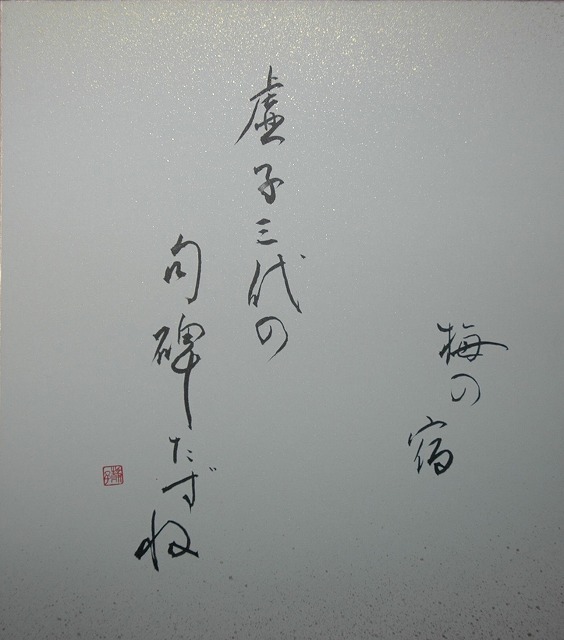 虚子三代の
句碑たずね
梅の宿